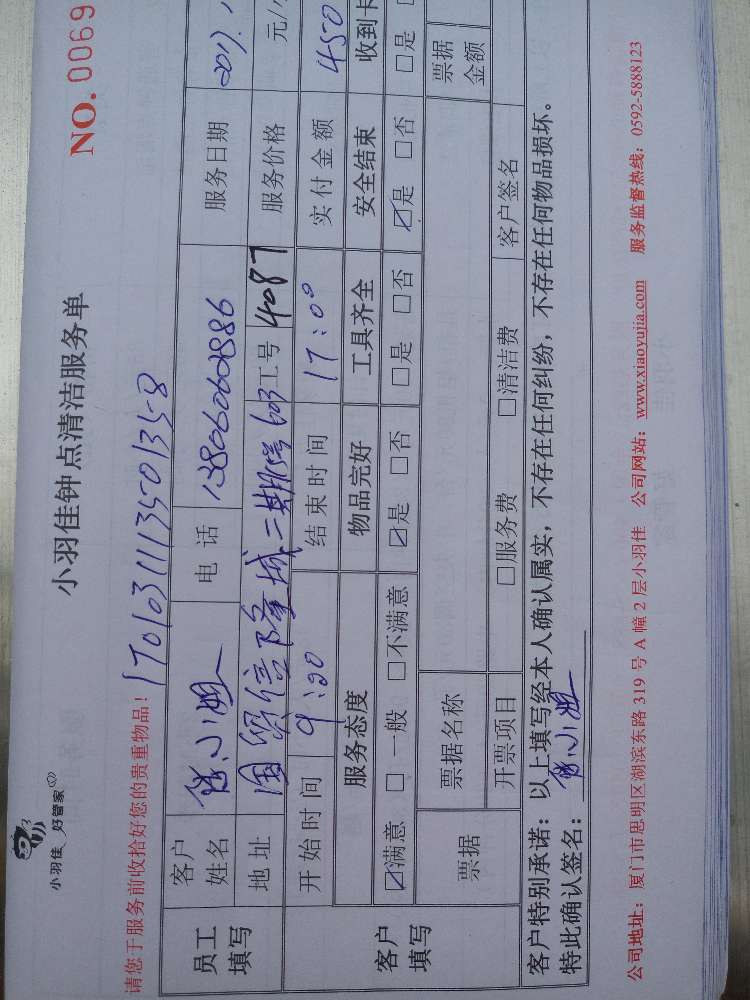 小羽佳 好管家
小羽佳钟点清洁服务单
NO.0069
请您于服务前收拾好您的贵重物品!
170103111350135-8
员工填写
客户姓名 小姐 电话 13806060886 服务日期 2017.1
地址 国贸信隆城二期 603 工号 4087 服务价格 元/
客户填写
开始时间 9:00 结束时间 17:00 实付金额 450
服务态度 物品完好 工具齐全 安全结束 收到卡
☑满意 □一般 □不满意 ☑是 □否 □是 □否 ☑是 □否 □是
票据 票据名称 票据金额
开票项目 □服务费 □清洁费 客户签名
客户特别承诺:以上填写经本人确认属实,不存在任何纠纷,不存在任何物品损坏。
特此确认签名: 小姐
公司地址:厦门市思明区湖滨东路 319 号 A 幢 2 层小羽佳 公司网站:www.xiaoyujia.com 服务监督热线:0592-5888123